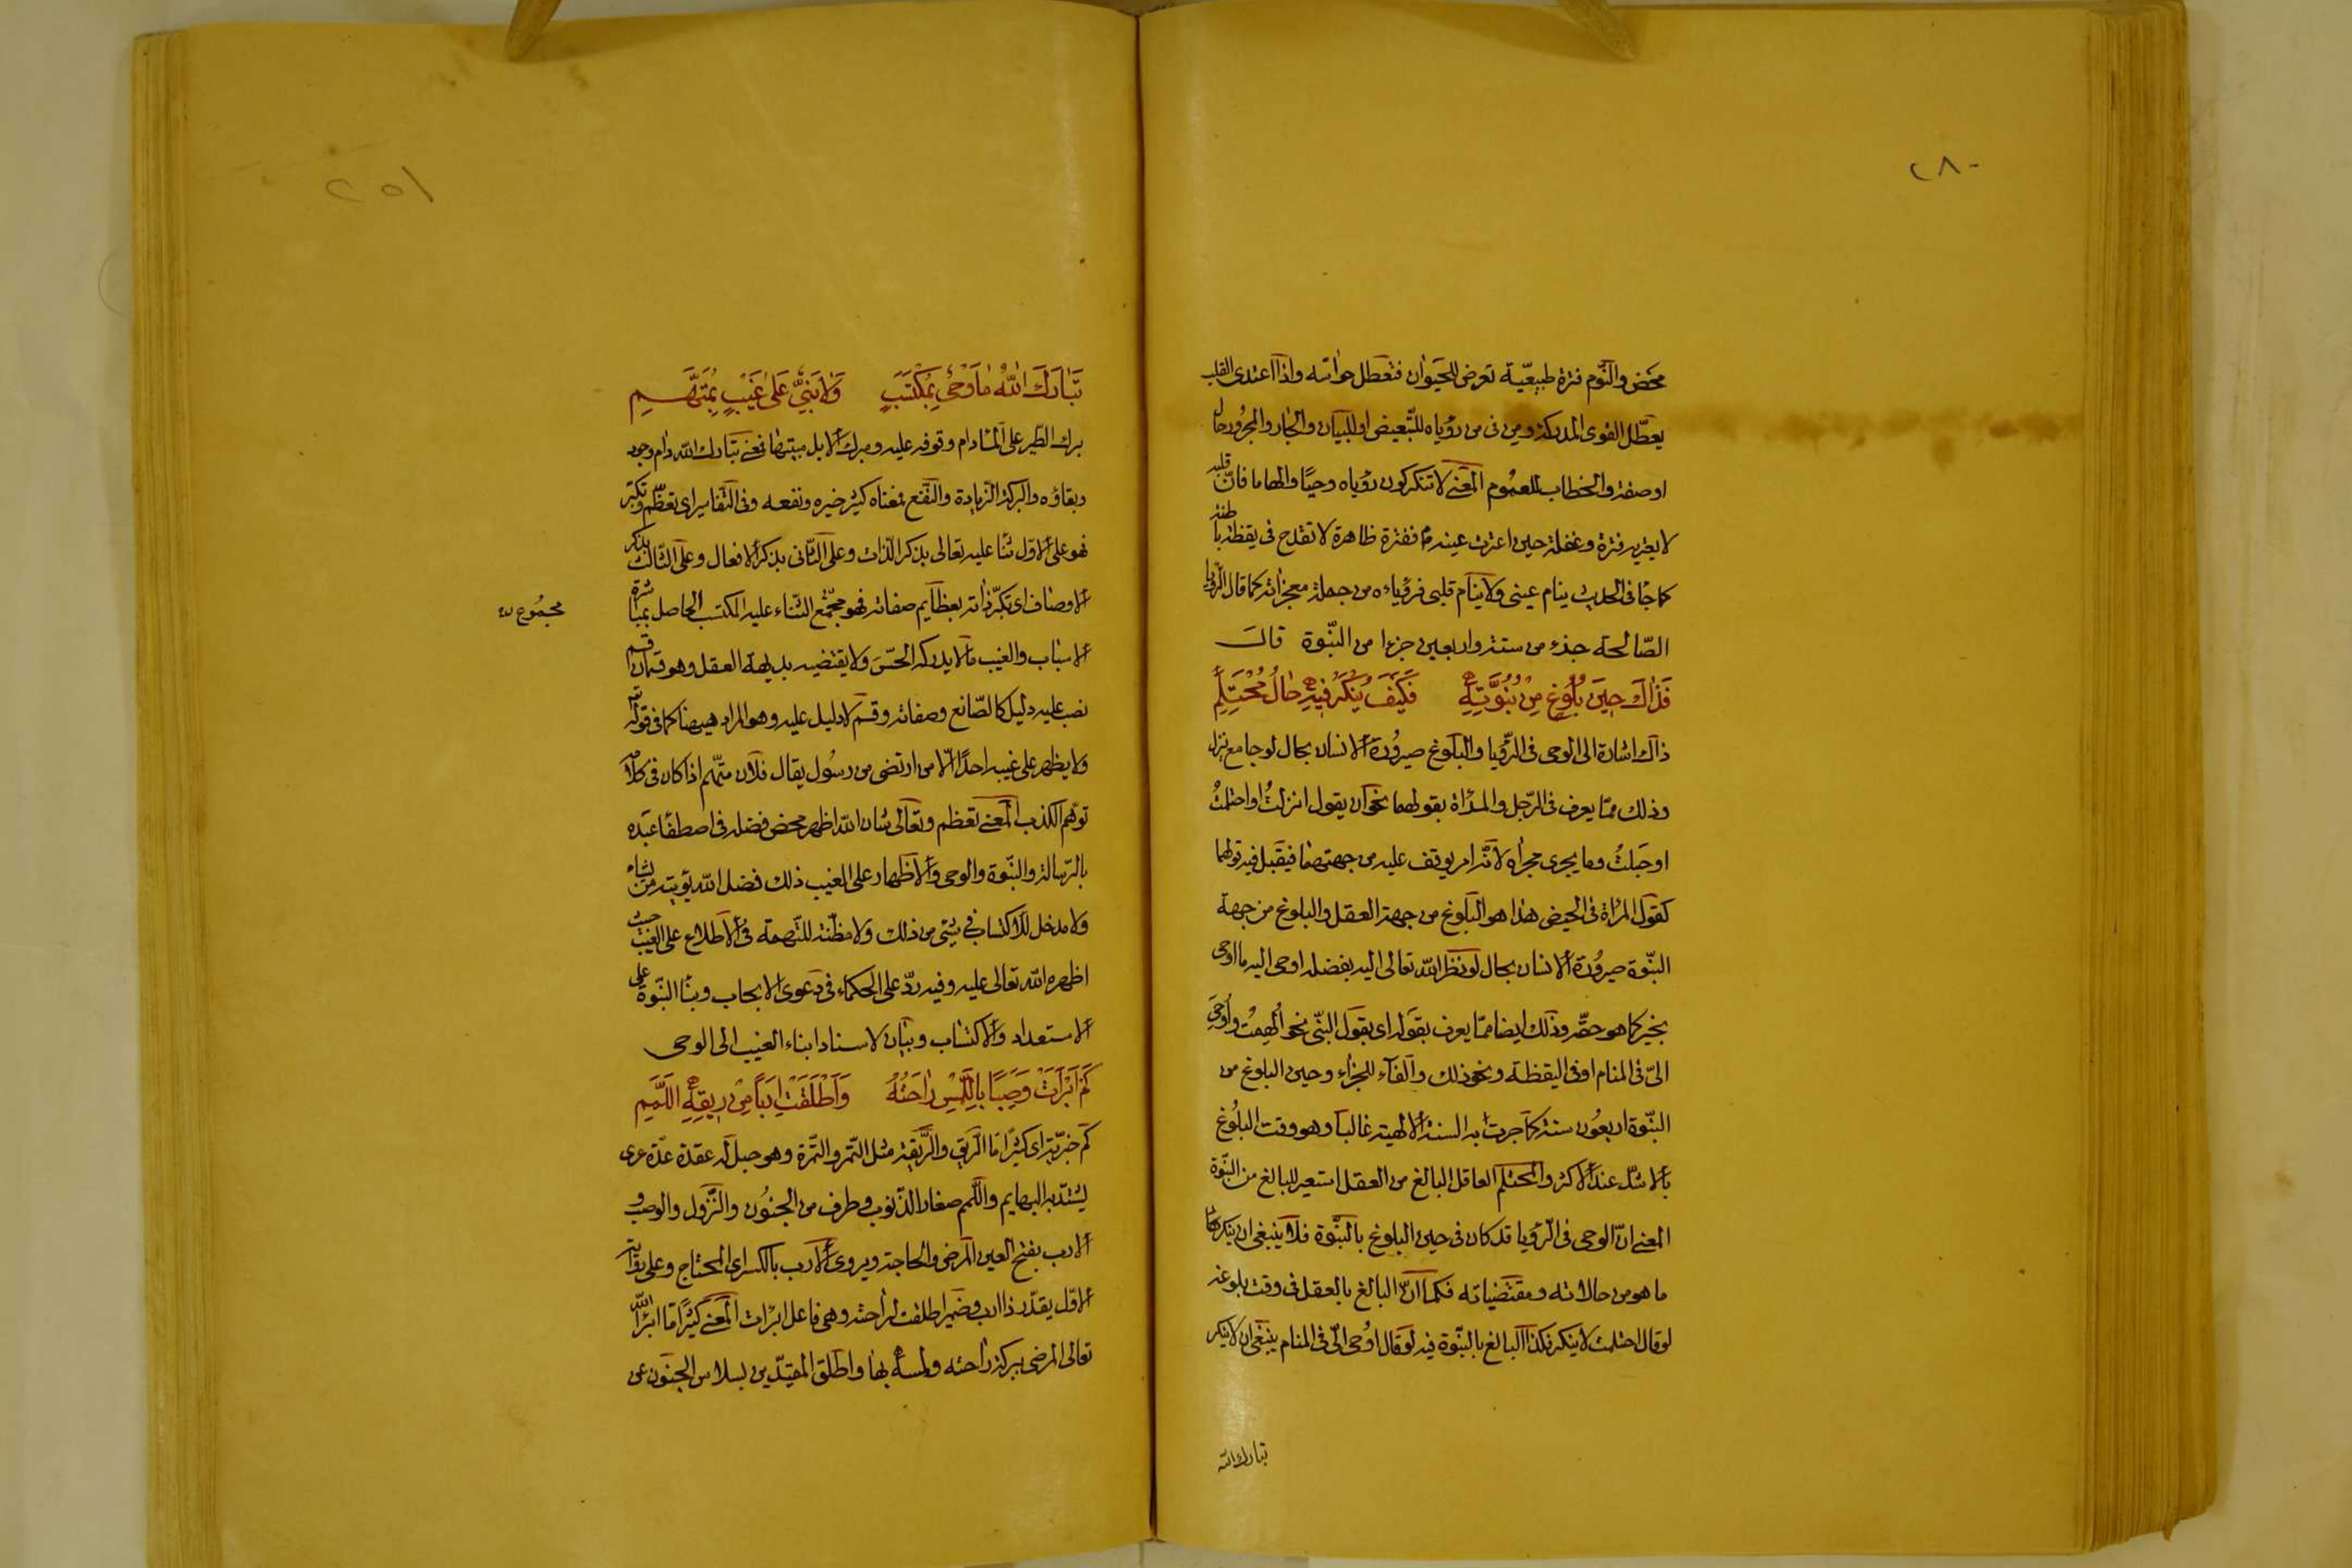 ٢٨٠
محض والنّوم فترة طبيعيّة تعرض للحيوان فتعطل حواسّه واذا اعتدى القلب
يعطّل القوى المدركة ومن فى من رؤياه للتّبعيض او للبيان والجار والمجرور حال
او صفة والخطاب للعموم المعنى لا تنكر كون رؤياه وحيًا والهاما فانّ قلبه
لا يعتريه فترة وغفلة حين اعترت عينه فترة ظاهرة لا تقدح فى يقظة باطنه
كما جٓا فى الحديث ينام عينى ولا ينام قلبى فرؤياه من جملة معجزاته كما قال الرّؤيا
الصّالحة جزء من ستة واربعين جزءا من النّبوة قال
فَذَاكَ حِينَ بُلُوغٍ مِنْ نُبُوَّتِهِ فَكَيْفَ يُنْكَرُ فِيهِ حَالُ مُحْتَلِمِ
ذاك اشارة الى الوحى فى الرّؤيا والبلوغ صيرورة الانسان بحال لو جامع نزل
وذلك ممّا يعرف فى الرّجل والمرأة بقولهما نحو ان يقول انزلتُ او احتلمتُ
او حبلتُ وما يجرى مجراه لانّه امر يوقف عليه من جهتهما فيقبل فيه قولهما
كقول المرأة فى الحيض هذا هو البلوغ من جهة العقل والبلوغ من جهة
النّبوة صيرورة الانسان بحال لو نظر الله تعالى اليه بفضله اوحى اليه ما اوحى
بخير كما هو حقّه وذلك ايضا ممّا يعرف بقوله اى بقول النّبى نحو اُلهمتُ واُوحى
الىّ فى المنام او فى اليقظة ونحو ذلك والفآء للجزاء وحين البلوغ من
النّبوة اربعون سنة كما جرت به السنة الالهية غالبا وهو وقت البلوغ
بالاشدّ عند الاكثر والمحتلم العاقل البالغ من العقل استعير للبالغ من النّبوة
المعنى انّ الوحى فى الرّؤيا قد كان فى حين البلوغ بالنّبوة فلا ينبغى ان ينكر
ما هو من حالاته ومقتضياته فكما انّ البالغ بالعقل فى وقت بلوغه
لو قال احتلمت لا ينكر فكذا البالغ بالنّبوة فيه لو قال اُوحى الىّ فى المنام ينبغى ان لا ينكر
تبارك الله
٢٥١
تَبَارَكَ اللهُ مَا وَحْىٌ بِمُكْتَسَبٍ وَلَا نَبِىٌّ عَلَى غَيْبٍ بِمُتَّهَمِ
برك الطّير على الماء دام وقوفه عليه ومبرك الابل مبيتها فمعنى تبارك الله دام وجوده
وبقاؤه والبركة الزّيادة والنّفع فمعناه كثير خيره ونفعه وفى التّفاسير اى تعظّم وتكبّر
فهو على الاوّل ثنا عليه تعالى بذكر الذات وعلى الثّانى بذكر الافعال وعلى الثّالث بذكر
الاوصاف اى تكبّر ذاته بعظايم صفاته فهو مجمّع الثناء عليه المكتسب الحاصل بمباشرة
مجموع
الاسباب والغيب ما لا يدركه الحسّ ولا يقتضيه بديهة العقل وهو قسمان قسم
نصب عليه دليل كالصّانع وصفاته وقسم لا دليل عليه وهو المراد ههنا كما فى قوله
ولا يظهر على غيبه احدًا الّا من ارتضى من رسول يقال فلان متّهم اذا كان فى كلامه
توهّم الكذب المعنى تعظم وتعالى شان الله اظهر محض فضله فى اصطفآ عبده
بالرّسالة والنّبوة والوحى والاظهار على الغيب ذلك فضل الله يؤتيه من يشاء
ولا مدخل للاكتساب فى شىء من ذلك ولا مظنّة للتّهمة فى الاطلاع على الغيب حيث
اظهره الله تعالى عليه وفيه ردّ على الحكماء فى دعوى الايجاب وبنآ النّبوة على
الاستعداد والاكتساب وبيان لاسناد ابناء الغيب الى الوحى
كَمْ اَبْرَأَتْ وَصِبًا بِاللَّمْسِ رَاحَتُهُ وَاَطْلَقَتْ اَرِبًا مِنْ رِبْقَةِ اللَّمَمِ
كم خبريّة اى كثيرًا مّا الربق والرّبقة مثل التّمر والتّمرة وهو حبل له عقدة عدّة عرى
يشدّ به البهايم واللّمم صغار الذّنوب وطرف من الجنون والنّزول والوصب و
الارب بفتح العين المرض والحاجة ويروى الارب بالكسر اى المحتاج وعلى
الاوّل يقدّر ذا ارب وضمير اطلقت لراحته وهى فاعل ابرات المعنى كثيرًا مّا ابرأ الله
تعالى المرضى ببركة راحته ولمسه بها واطلق المقيّدين بسلاسل الجنون عن